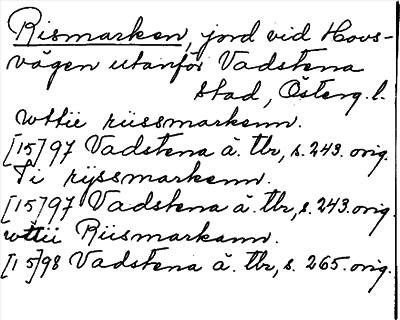 Rismarken, jord vid Hovs-
vägen utanför Vadstena
stad, Österg. l.
wttii riissmarkenn.
[15]97 Vadstena ä. tbr, s. 243. orig.
Ti rijssmarkenn.
[15]97 Vadstena ä. tbr, s. 243. orig.
wttii Riismarkann.
[15]98 Vadstena ä. tbr, s. 265. orig.